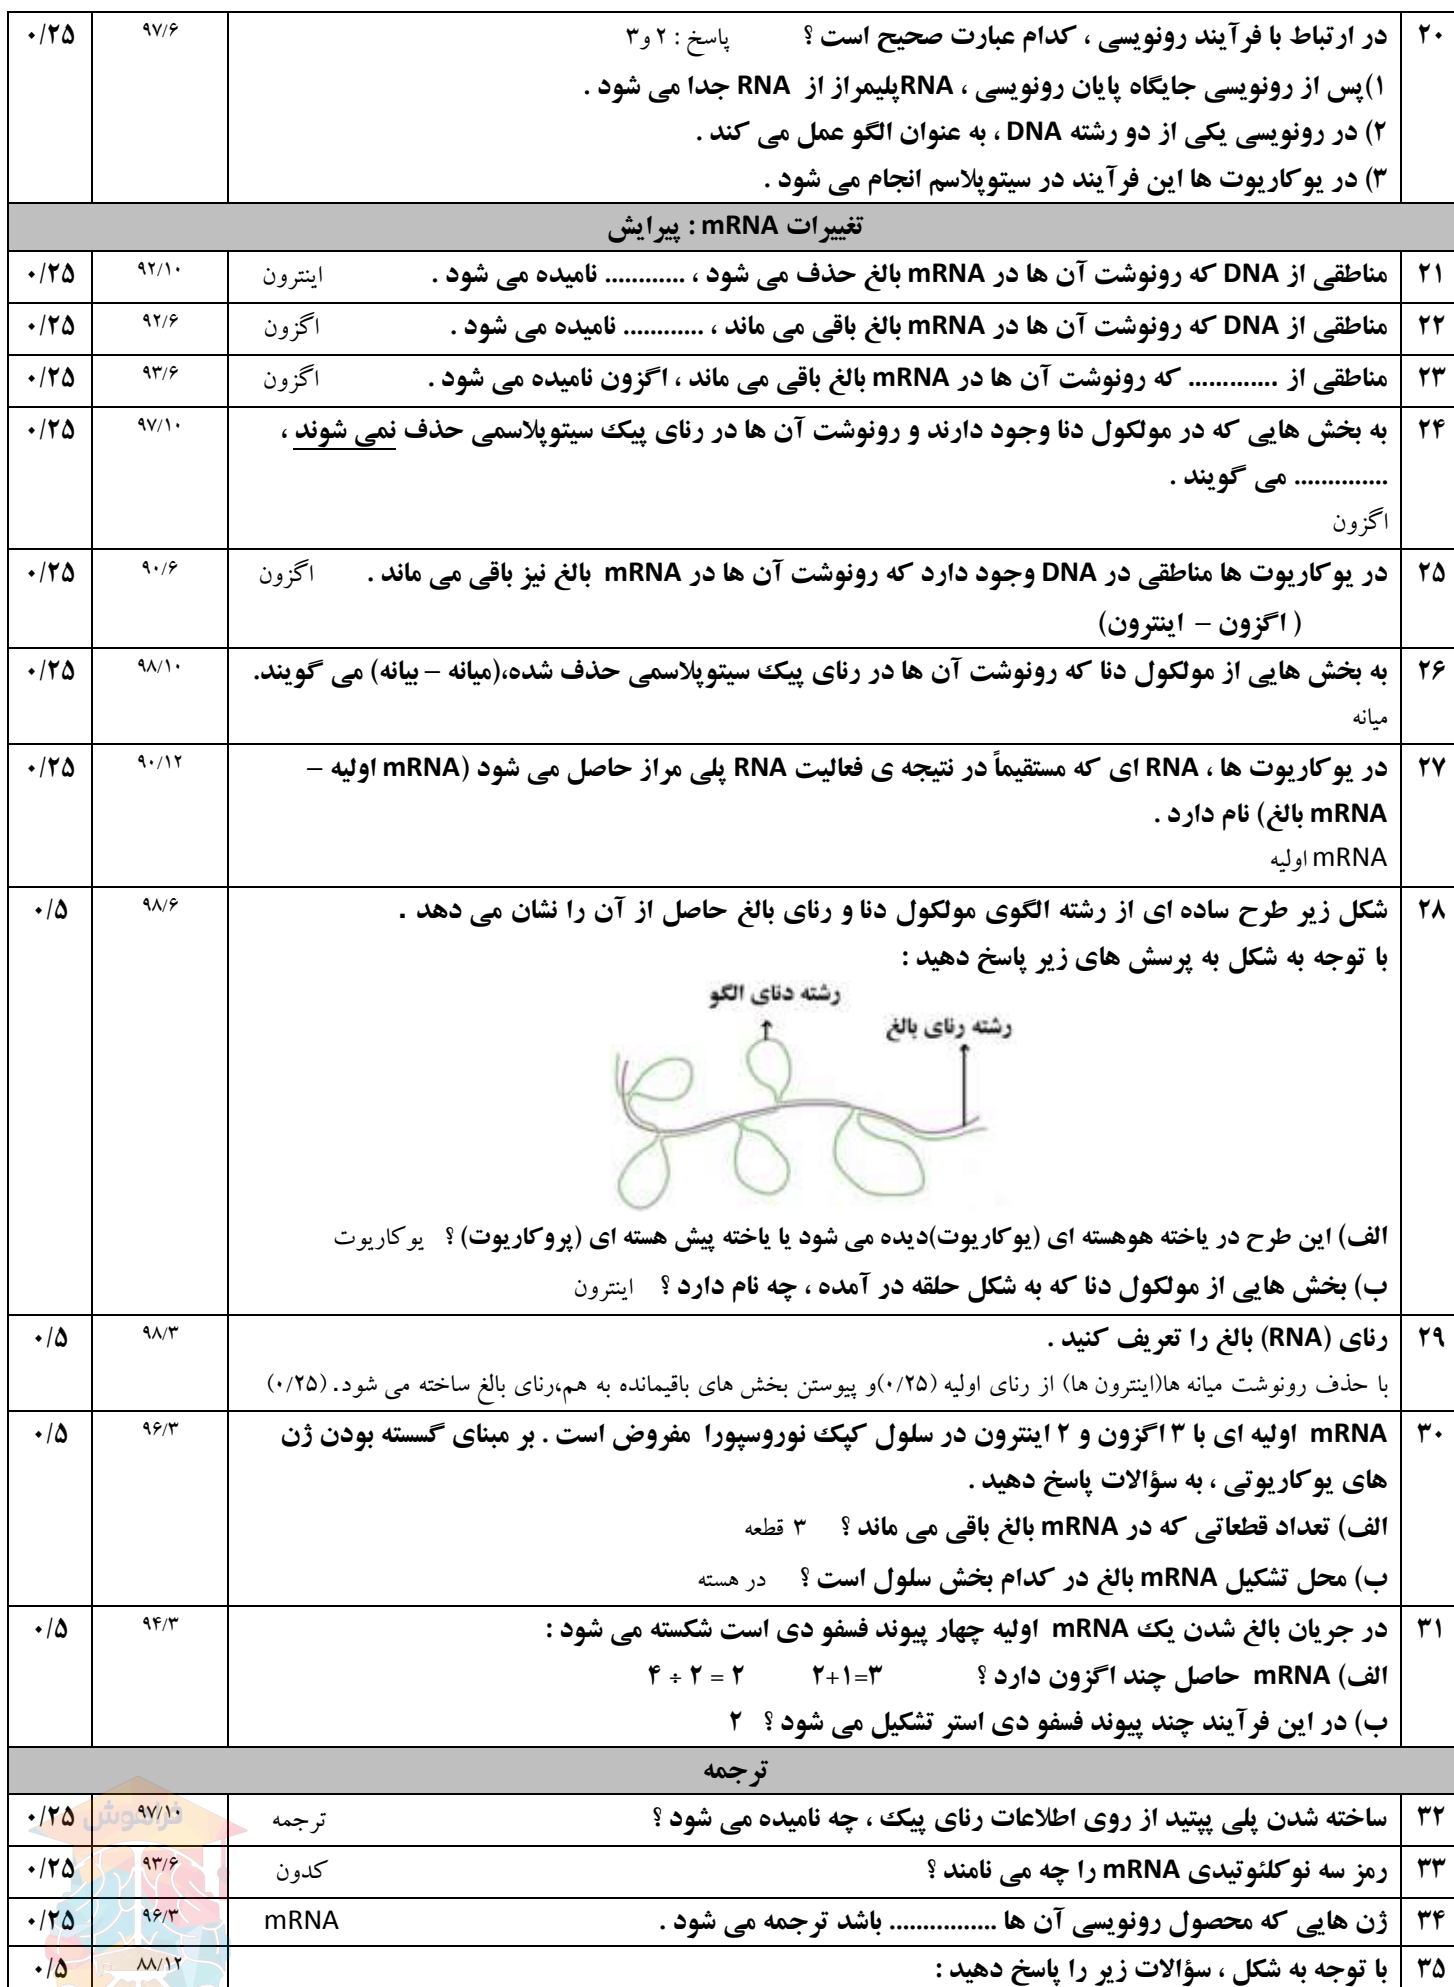 ۲۰ در ارتباط با فرآیند رونویسی ، کدام عبارت صحیح است ؟ پاسخ : ۲ و۳ ۹۷/۶ ۰/۲۵
۱)پس از رونویسی جایگاه پایان رونویسی ، RNAپلیمراز از RNA جدا می شود .
۲) در رونویسی یکی از دو رشته DNA ، به عنوان الگو عمل می کند .
۳) در یوکاریوت ها این فرآیند در سیتوپلاسم انجام می شود .
تغییرات mRNA : پیرایش
۲۱ مناطقی از DNA که رونوشت آن ها در mRNA بالغ حذف می شود ، ............ نامیده می شود . اینترون ۹۲/۱۰ ۰/۲۵
۲۲ مناطقی از DNA که رونوشت آن ها در mRNA بالغ باقی می ماند ، ............ نامیده می شود . اگزون ۹۲/۶ ۰/۲۵
۲۳ مناطقی از ............. که رونوشت آن ها در mRNA بالغ باقی می ماند ، اگزون نامیده می شود . اگزون ۹۳/۶ ۰/۲۵
۲۴ به بخش هایی که در مولکول دنا وجود دارند و رونوشت آن ها در رنای پیک سیتوپلاسمی حذف نمی شوند ، ۹۷/۱۰ ۰/۲۵
.............. می گویند .
اگزون
۲۵ در یوکاریوت ها مناطقی در DNA وجود دارد که رونوشت آن ها در mRNA بالغ نیز باقی می ماند . اگزون ۹۰/۶ ۰/۲۵
( اگزون – اینترون)
۲۶ به بخش هایی از مولکول دنا که رونوشت آن ها در رنای پیک سیتوپلاسمی حذف شده،(میانه – بیانه) می گویند. ۹۸/۱۰ ۰/۲۵
میانه
۲۷ در یوکاریوت ها ، RNA ای که مستقیماً در نتیجه ی فعالیت RNA پلی مراز حاصل می شود (mRNA اولیه – ۹۰/۱۲ ۰/۲۵
mRNA بالغ) نام دارد .
mRNA اولیه
۲۸ شکل زیر طرح ساده ای از رشته الگوی مولکول دنا و رنای بالغ حاصل از آن را نشان می دهد . ۹۸/۶ ۰/۵
با توجه به شکل به پرسش های زیر پاسخ دهید :
رشته دنای الگو
رشته رنای بالغ
الف) این طرح در یاخته هوهسته ای (یوکاریوت)دیده می شود یا یاخته پیش هسته ای (پروکاریوت) ؟ یوکاریوت
ب) بخش هایی از مولکول دنا که به شکل حلقه در آمده ، چه نام دارد ؟ اینترون
۲۹ رنای (RNA) بالغ را تعریف کنید . ۹۸/۳ ۰/۵
با حذف رونوشت میانه ها(اینترون ها) از رنای اولیه (۰/۲۵)و پیوستن بخش های باقیمانده به هم،رنای بالغ ساخته می شود. (۰/۲۵)
۳۰ mRNA اولیه ای با ۳ اگزون و ۲ اینترون در سلول کپک نوروسپورا مفروض است . بر مبنای گسسته بودن ژن ۹۶/۳ ۰/۵
های یوکاریوتی ، به سؤالات پاسخ دهید .
الف) تعداد قطعاتی که در mRNA بالغ باقی می ماند ؟ ۳ قطعه
ب) محل تشکیل mRNA بالغ در کدام بخش سلول است ؟ در هسته
۳۱ در جریان بالغ شدن یک mRNA اولیه چهار پیوند فسفو دی است شکسته می شود : ۹۴/۳ ۰/۵
الف) mRNA حاصل چند اگزون دارد ؟ ۲+۱=۳ ۴ ÷ ۲ = ۲
ب) در این فرآیند چند پیوند فسفو دی استر تشکیل می شود ؟ ۲
ترجمه
۳۲ ساخته شدن پلی پپتید از روی اطلاعات رنای پیک ، چه نامیده می شود ؟ ترجمه ۹۷/۱۰ ۰/۲۵
فراموش
۳۳ رمز سه نوکلئوتیدی mRNA را چه می نامند ؟ کدون ۹۳/۶ ۰/۲۵
۳۴ ژن هایی که محصول رونویسی آن ها ................ باشد ترجمه می شود . mRNA ۹۶/۳ ۰/۲۵
۳۵ با توجه به شکل ، سؤالات زیر را پاسخ دهید : ۸۸/۱۲ ۰/۵